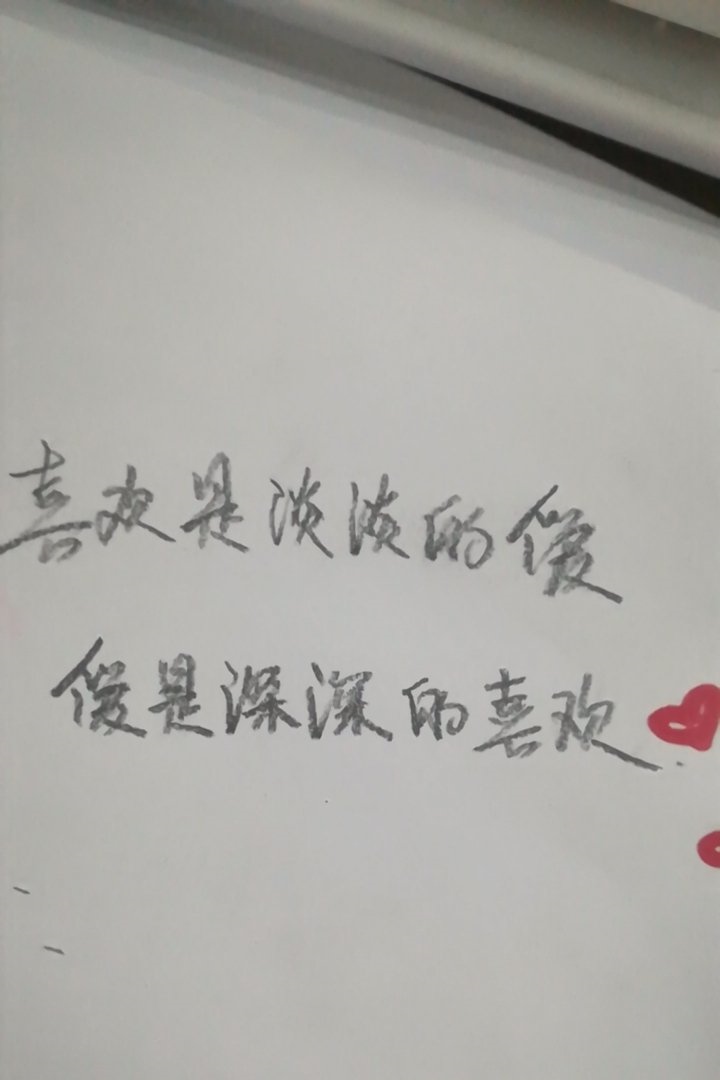 喜欢是淡淡的爱
爱是深深的喜欢